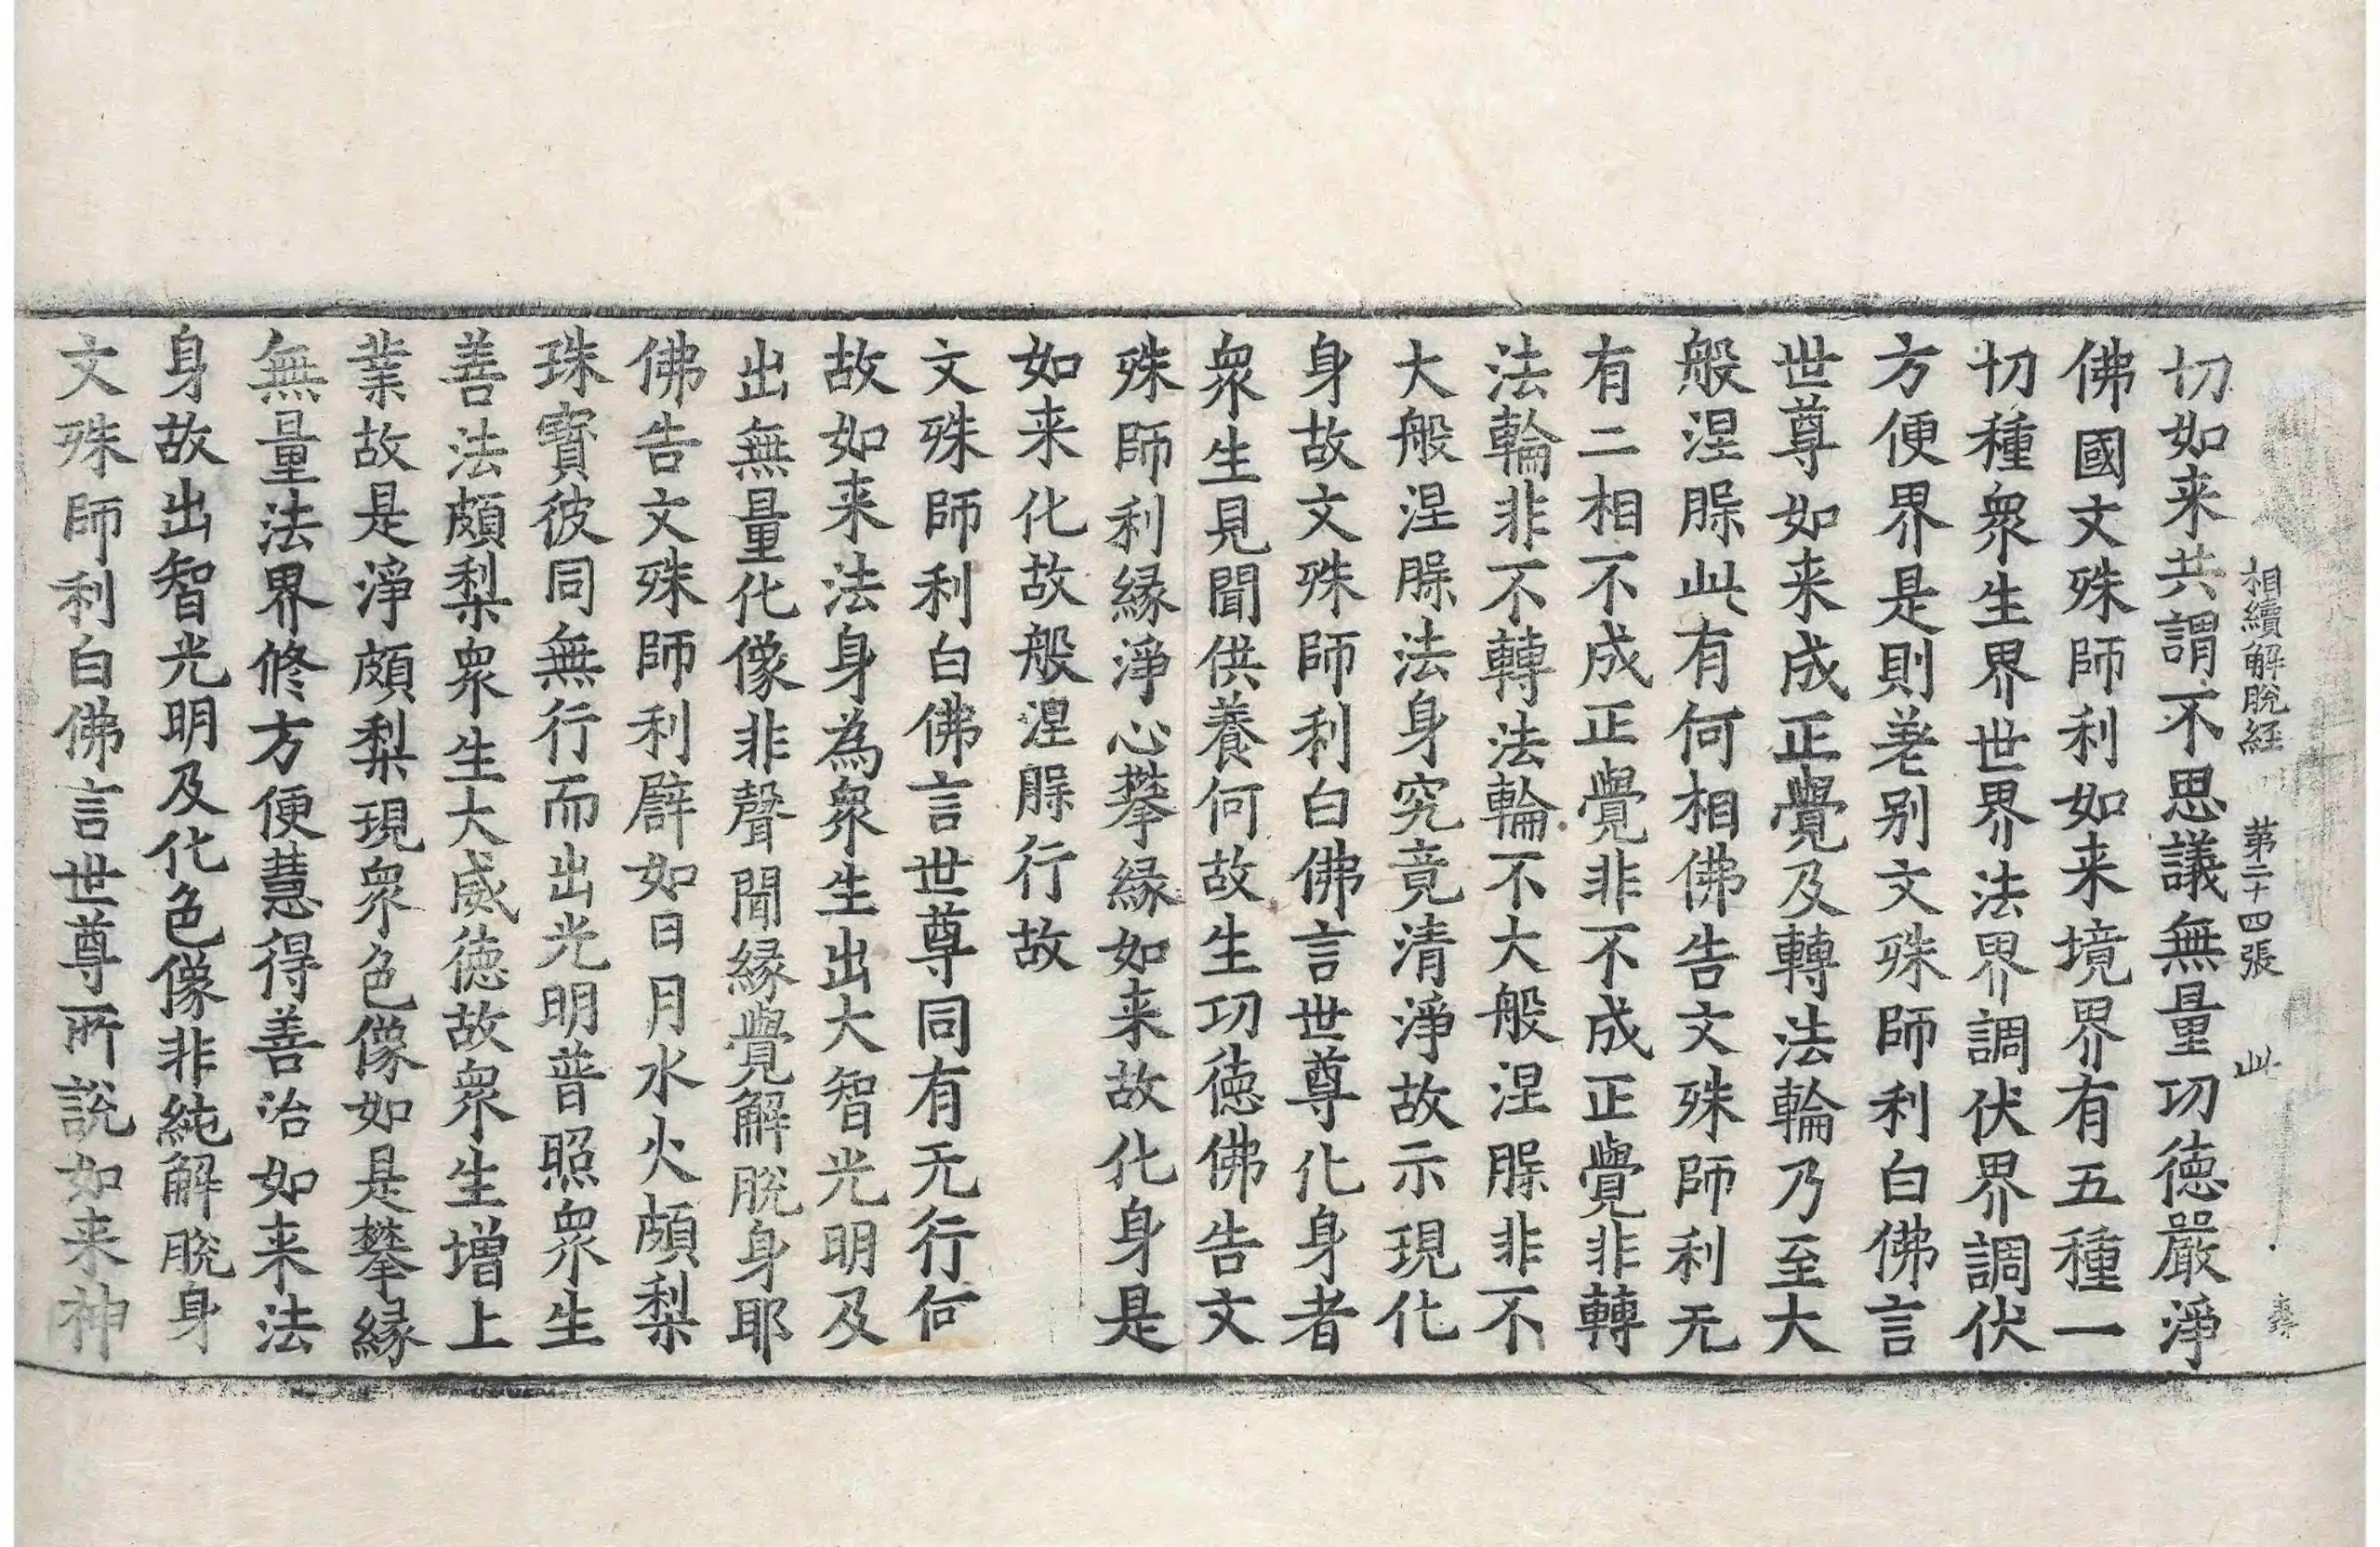 相續解脫經 第二十四張 此
切如来共謂不思議無量功徳嚴淨
佛國文殊師利如来境界有五種一
切種衆生界世界法界調伏界調伏
方便界是則差别文殊師利白佛言
世尊如来成正覺及轉法輪乃至大
般涅槃此有何相佛告文殊師利无
有二相不成正覺非不成正覺非轉
法輪非不轉法輪不大般涅槃非不
大般涅槃法身究竟清淨故示現化
身故文殊師利白佛言世尊化身者
衆生見聞供養何故生功徳佛告文
殊師利縁淨心攀縁如来故化身是
如来化故般涅槃行故
文殊師利白佛言世尊同有无行何
故如来法身為衆生出大智光明及
出無量化像非聲聞縁覺解脫身耶
佛告文殊師利辟如日月水火頗梨
珠寳彼同無行而出光明普照衆生
善法頗梨衆生大威徳故衆生增上
業故是淨頗梨現衆色像如是攀縁
無量法界修方便慧得善治如来法
身故出智光明及化色像非純解脫身
文殊師利白佛言世尊所說如来神